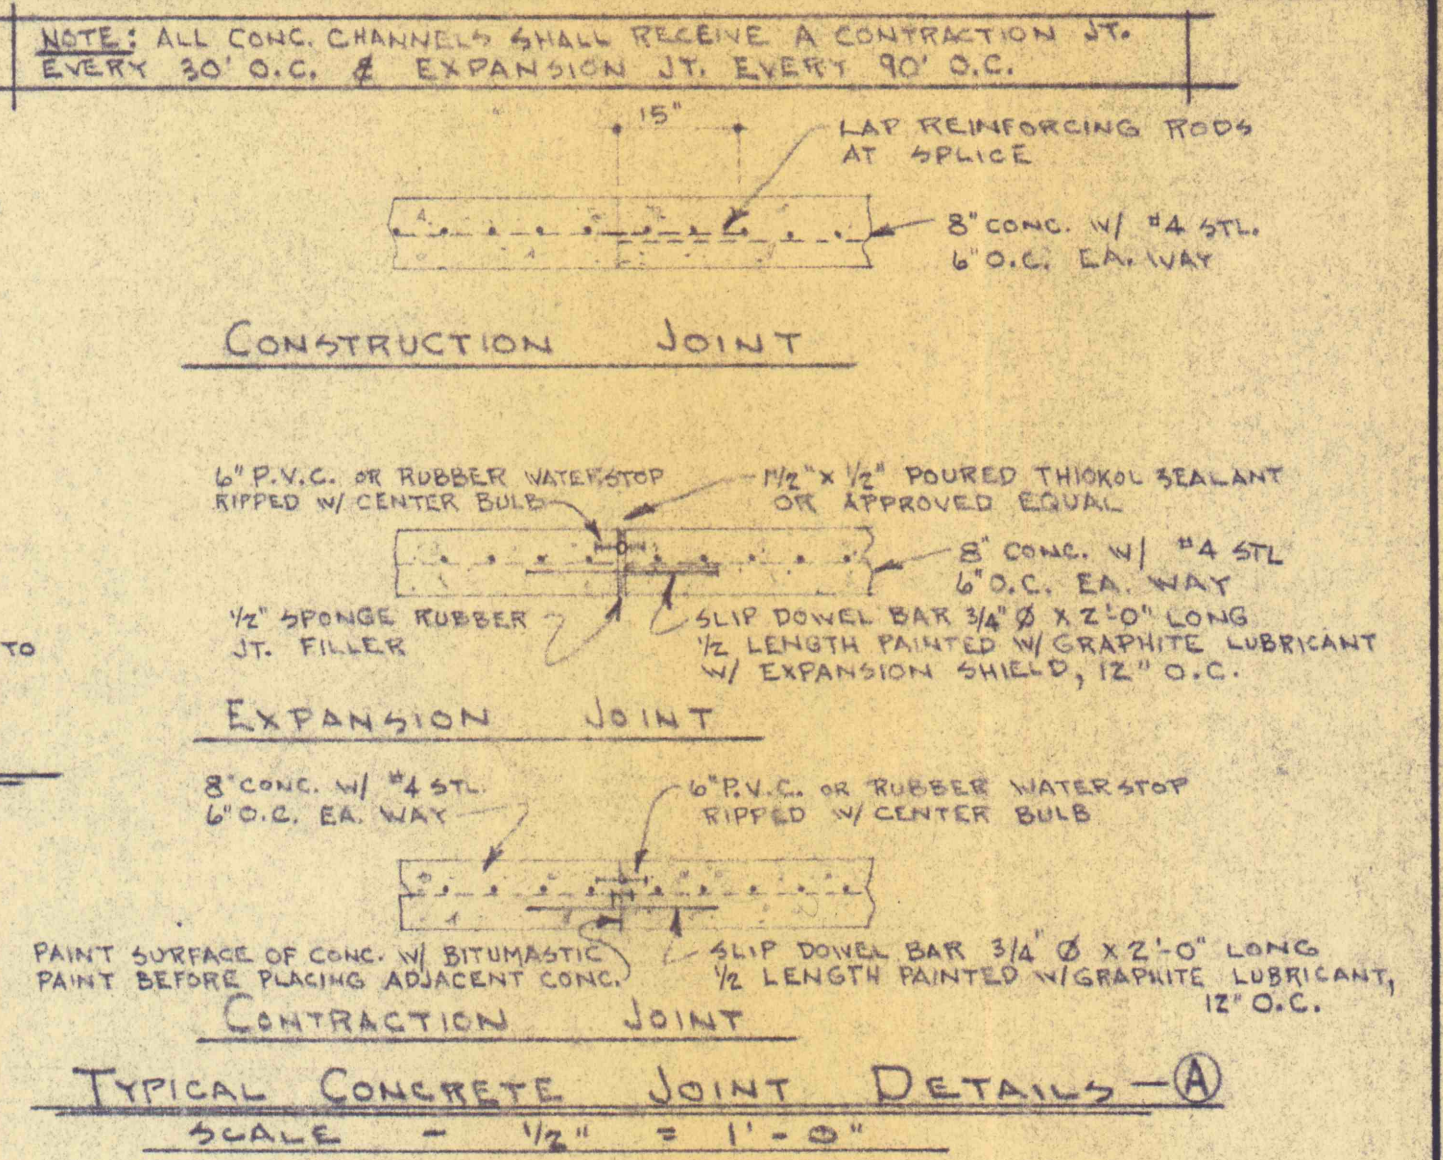 NOTE: ALL CONC. CHANNELS SHALL RECEIVE A CONTRACTION JT.
EVERY 30' O.C. & EXPANSION JT. EVERY 90' O.C.
15"
LAP REINFORCING RODS
AT SPLICE
8" CONC. W/ #4 STL.
6" O.C. EA. WAY
CONSTRUCTION JOINT
6" P.V.C. OR RUBBER WATERSTOP
RIPPED W/ CENTER BULB
1/2" x 1/2" POURED THIOKOL SEALANT
OR APPROVED EQUAL
8" CONC. W/ #4 STL
6" O.C. EA. WAY
1/2" SPONGE RUBBER
JT. FILLER
SLIP DOWEL BAR 3/4" Ø X 2'-0" LONG
1/2 LENGTH PAINTED W/ GRAPHITE LUBRICANT
W/ EXPANSION SHIELD, 12" O.C.
TO
EXPANSION JOINT
8" CONC. W/ #4 STL.
6" O.C. EA. WAY
6" P.V.C. OR RUBBER WATERSTOP
RIPPED W/ CENTER BULB
PAINT SURFACE OF CONC. W/ BITUMASTIC
PAINT BEFORE PLACING ADJACENT CONC.
SLIP DOWEL BAR 3/4" Ø X 2'-0" LONG
1/2 LENGTH PAINTED W/ GRAPHITE LUBRICANT,
12" O.C.
CONTRACTION JOINT
TYPICAL CONCRETE JOINT DETAILS - A
SCALE - 1/2" = 1'-0"